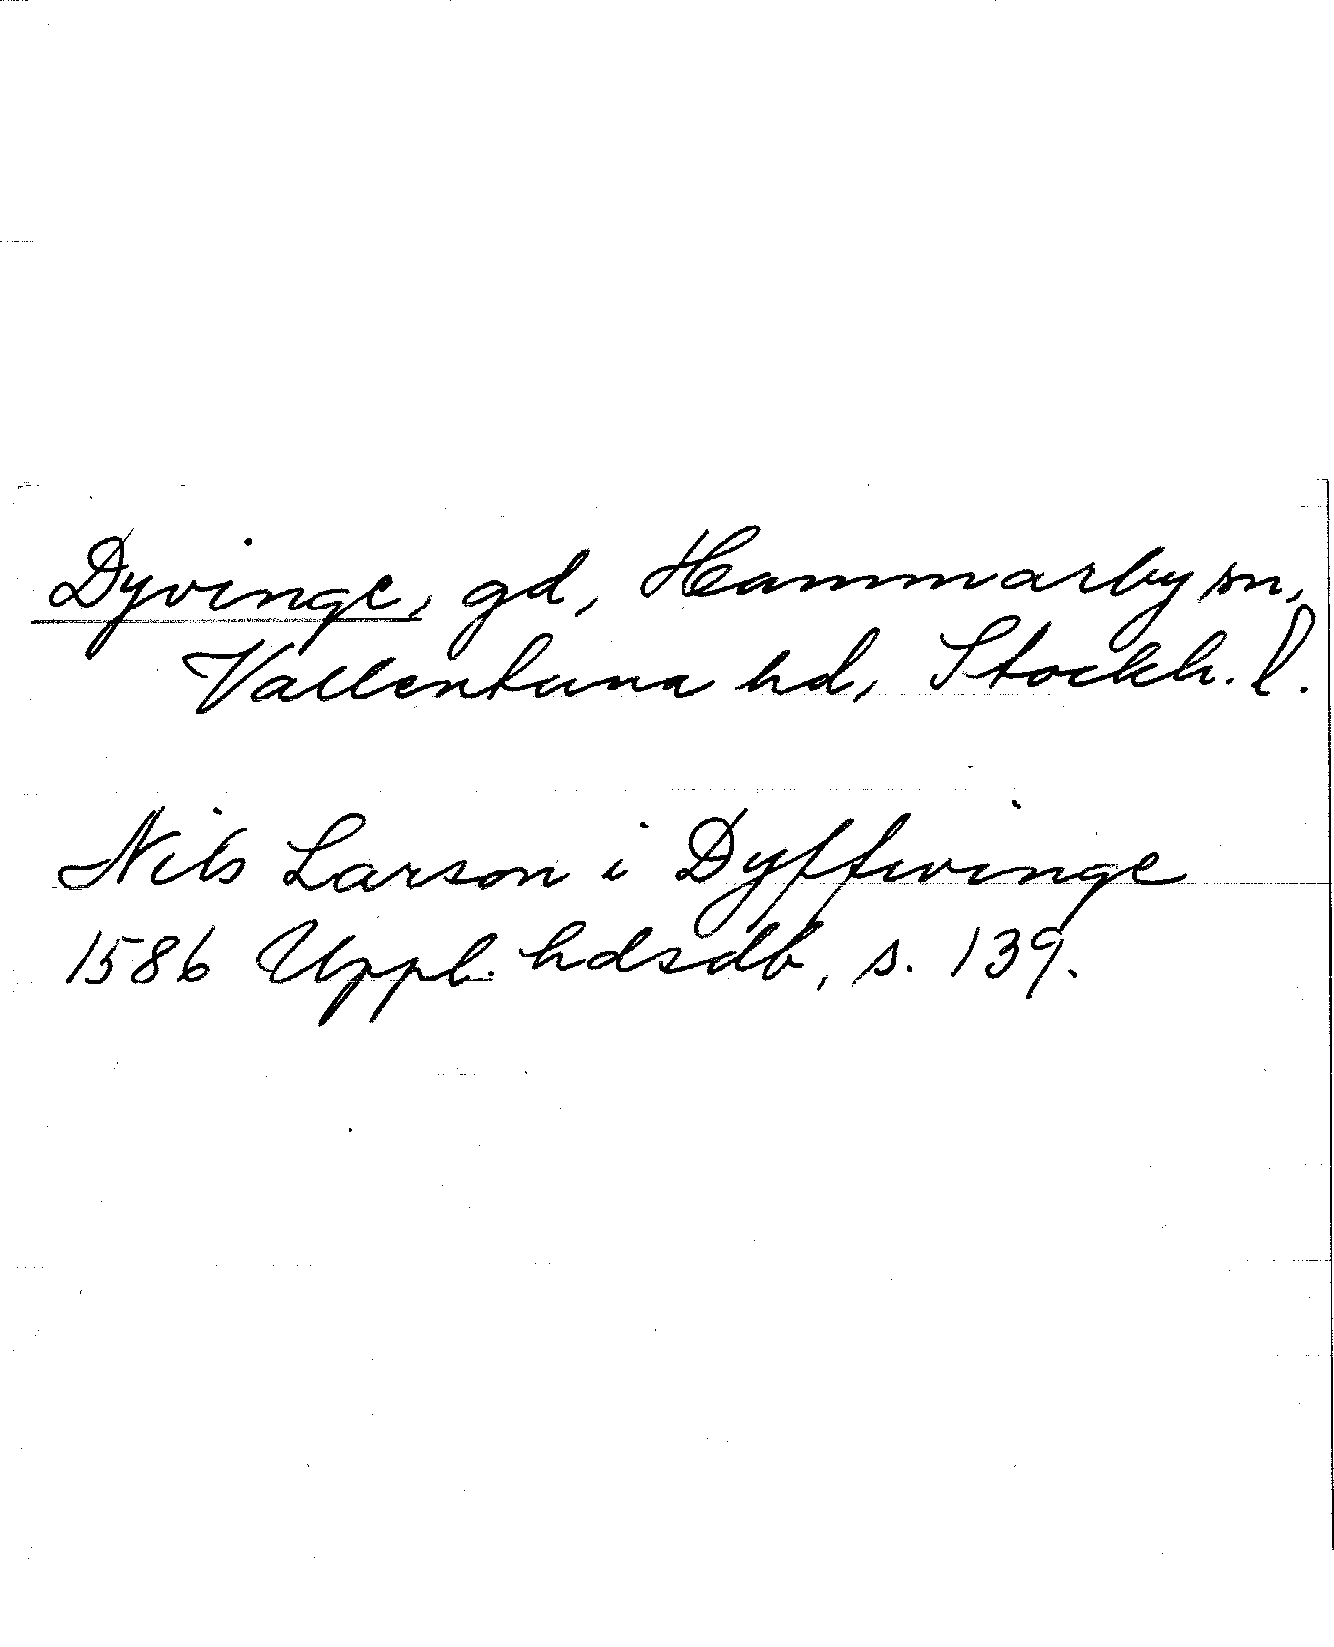 Dyvinge, gd, Hammarby sn,
Vallentuna hd, Stockh. l.
Nils Larson i Dyffwinge
1586 Uppl. hdsdb, s. 139.